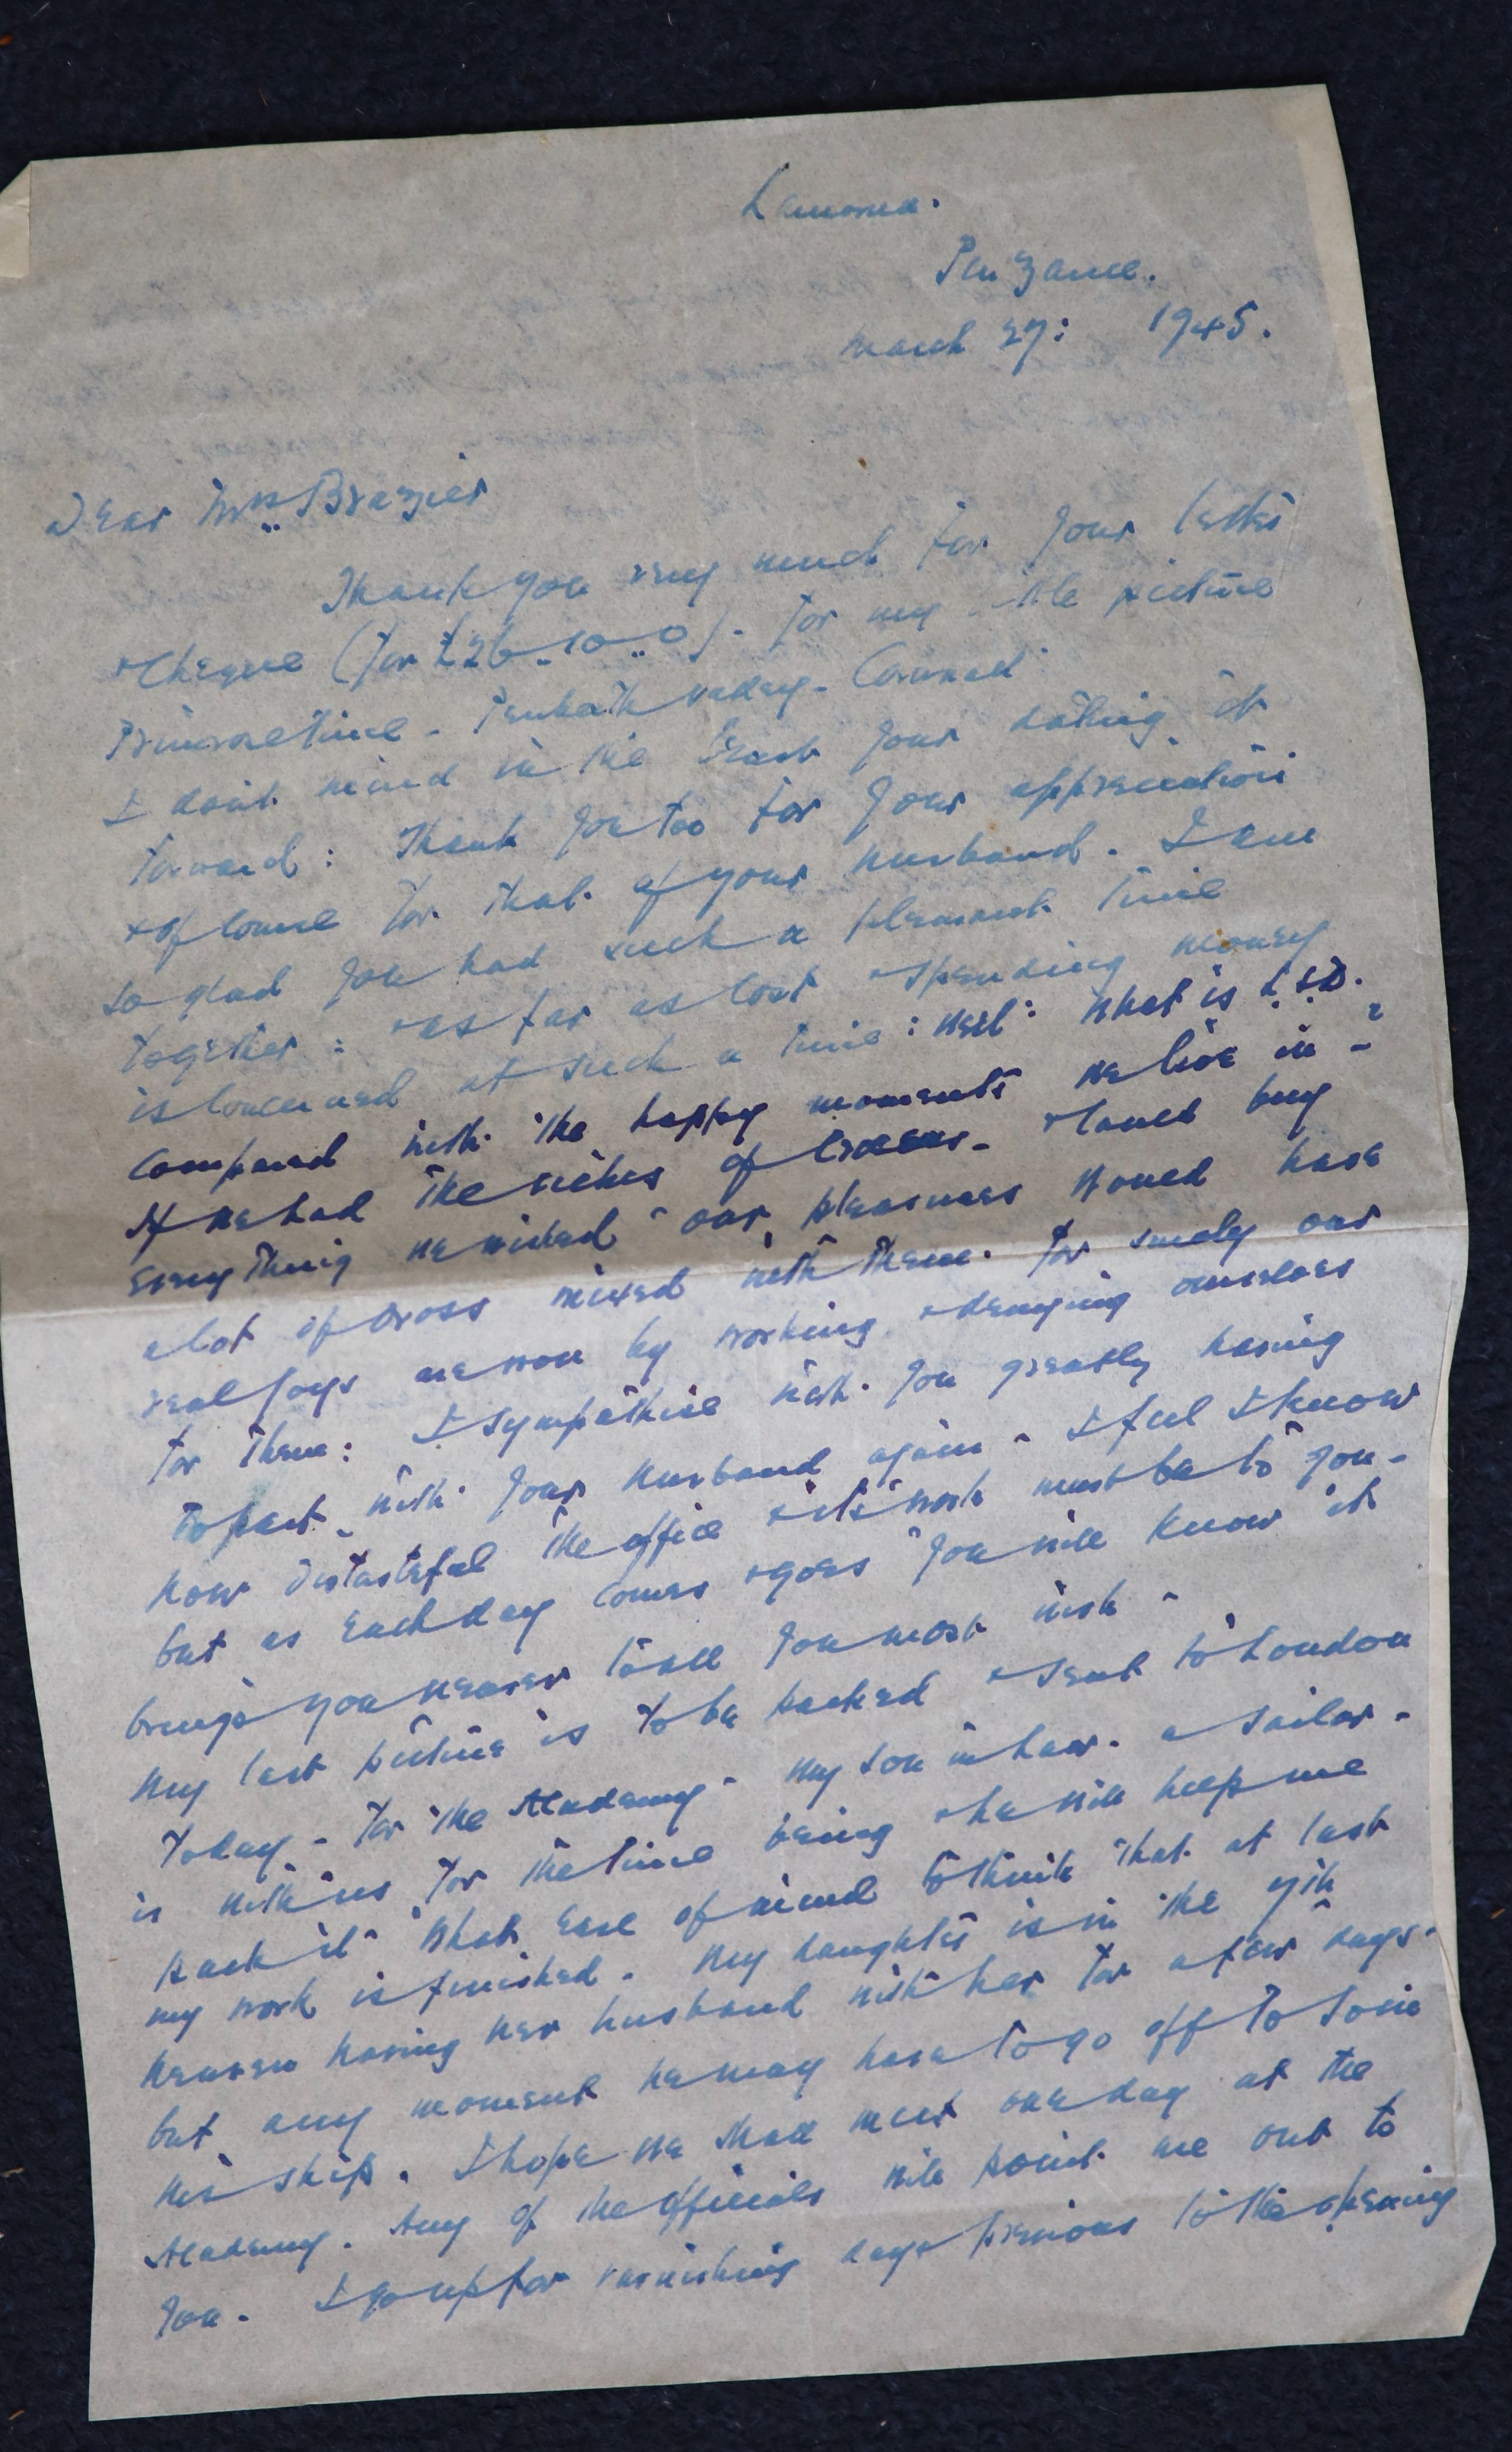 Lamorna.
Penzance.
March 27: 1945.
Dear Mrs Brazier
Thank you very much for your letter
+ Cheque (for £26-10-0). for my little picture
Primrosetime - Penberth valley - Cornwall
I don't mind in the least your dating it
forward: Thank you too for your appreciation
+ of course for that of your husband. I am
so glad you had such a pleasant time
together: + as far as cost + spending money
is concerned at such a time: well: what is L.S.D.
compared with the happy moments we live in - ?
If we had the riches of Croesus - + could buy
everything we wished - our pleasures would have
a lot of dross mixed with them. for surely our
real joys are won by working + denying ourselves
for them: I sympathise with you greatly having
to part with your husband again - I feel I know
how distasteful the office + its work must be to you -
but as each day comes + goes you will know it
brings you nearer to all you most wish -
My last picture is to be packed + sent to London
today - for the Academy - My son in law - a sailor -
is with us for the time being + he will help me
pack it - What ease of mind to think that at last
my work is finished. My daughter is in the 7th
heaven having her husband with her for a few days -
but any moment he may have to go off to join
his ship. I hope we shall meet one day at the
Academy. Any of the officials will point me out to
you. I go up for varnishing days previous to the opening